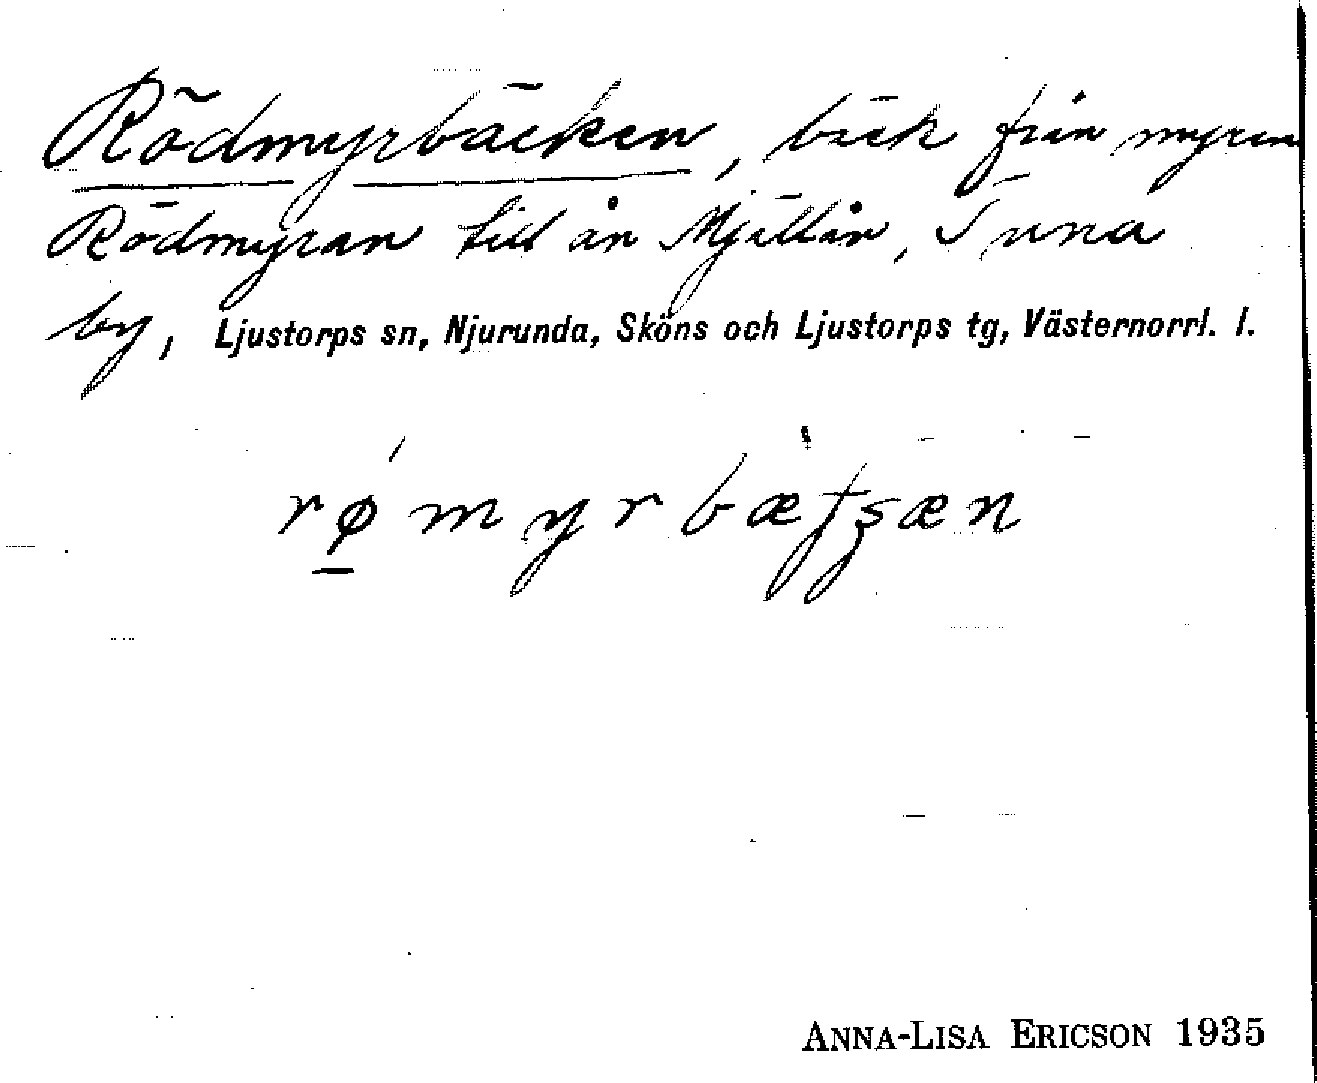 Rödmyrbäcken, bäck från myren
Rödmyran till ån Mjällån, Tuna
by, Ljustorps sn, Njurunda, Sköns och Ljustorps tg, Västernorrl. l.
ANNA-LISA ERICSON 1935